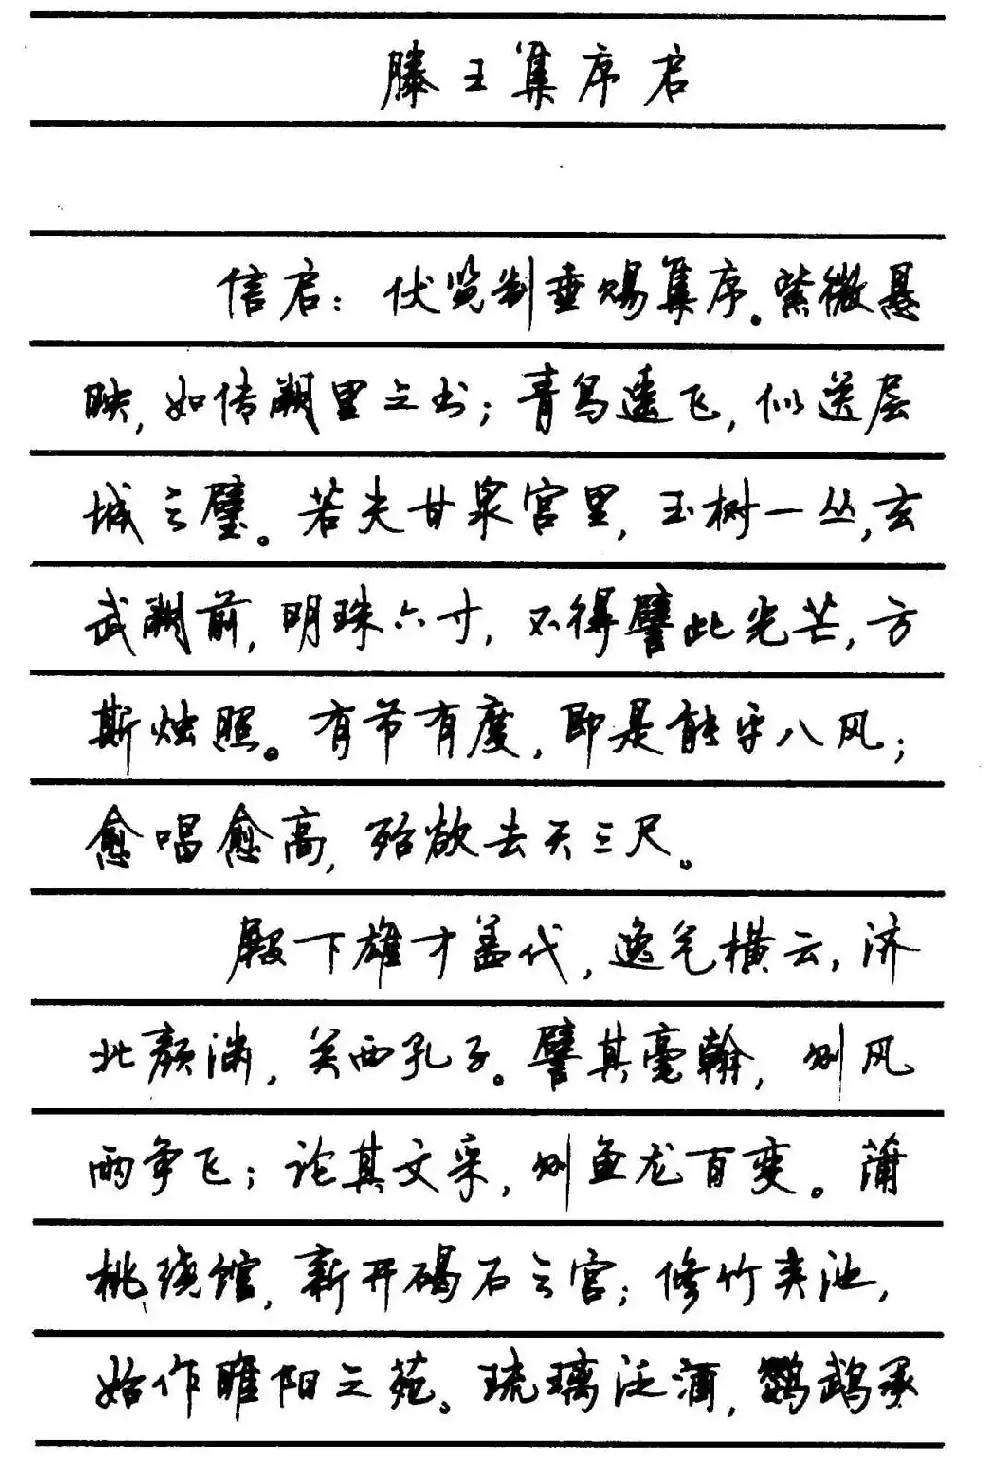 滕王集序启
信启：伏览制垂赐集序。紫微悬
映，如传阙里之书；青鸟遥飞，似送层
城之璧。若夫甘泉宫里，玉树一丛，玄
武阙前，明珠六寸，不得譬此光芒，方
斯烛照。有节有度，即是能平八风；
愈唱愈高，殆欲去天三尺。
殿下雄才盖代，逸气横云，济
北颜渊，关西孔子。譬其毫翰，则风
雨争飞；论其文采，则鱼龙百变。蒲
桃绕馆，新开碣石之宫；修竹夹池，
始作睢阳之苑。琉璃泛酒，鹦鹉承